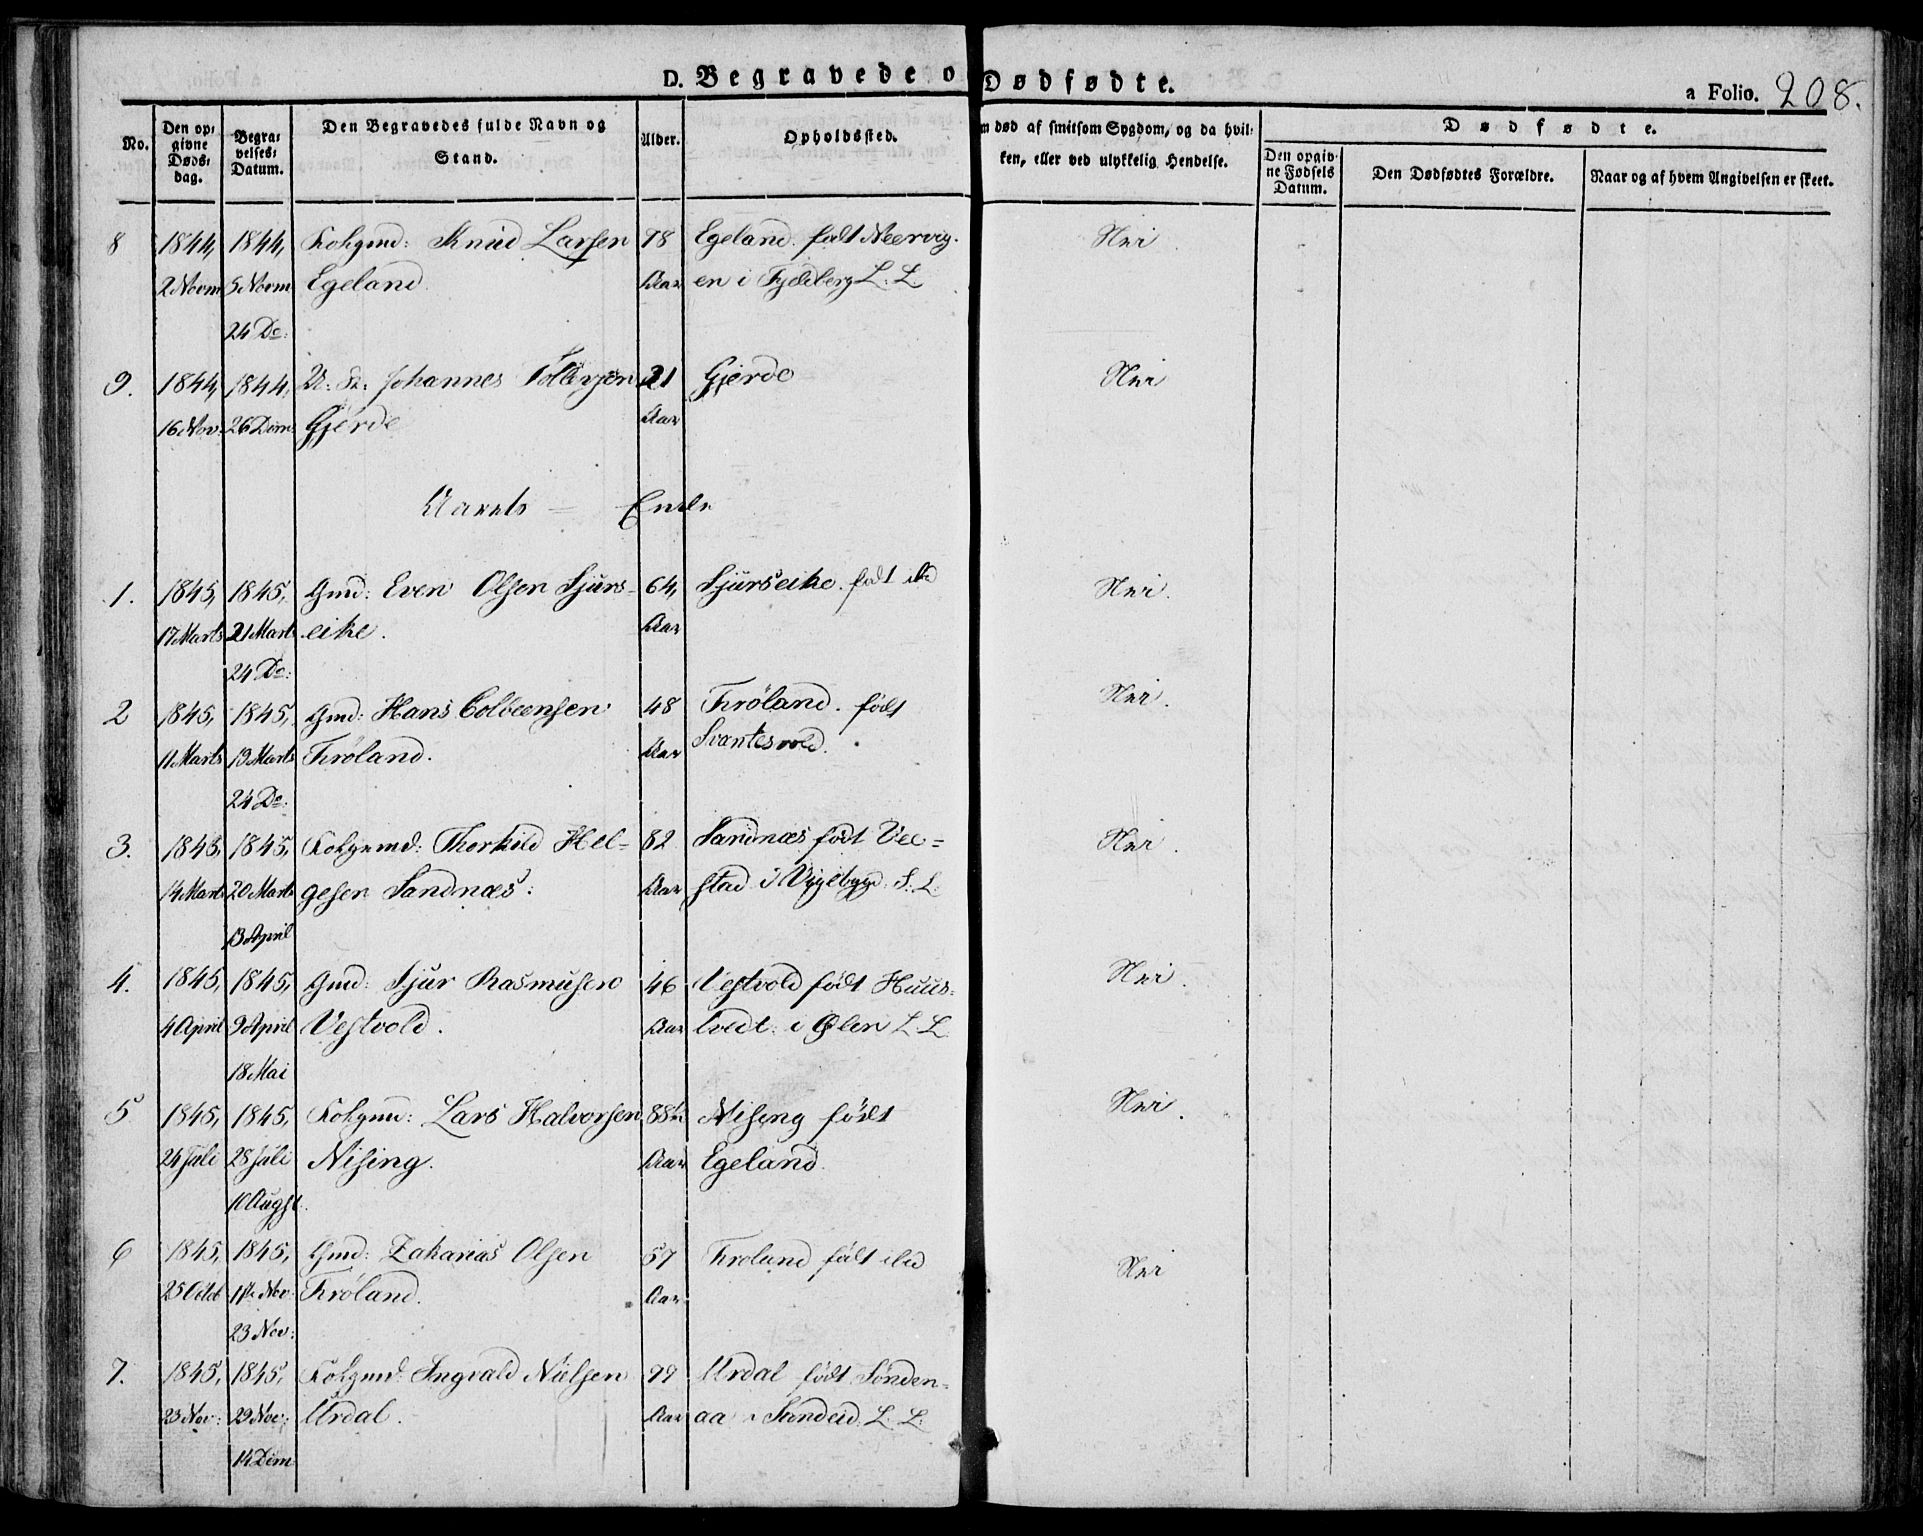 D. Begravede o Dødfødte.
a Folio. 208.
No.
Den op-
givne
Døds-
dag.
Begra-
velses-
Datum.
Den Begravedes fulde Navn og
Stand.
Alder.
Opholdssted.
m død af smitsom Sygdom, og da hvil-
ken, eller ved ulykkelig Hendelse.
Dødfødte.
Den opgiv-
ne Fødsels
Datum.
Den Dødfødtes Forældre.
Naar og af hvem Angivelsen er skeet.
8 1844, 1844, Kokgmd: Knud Larsen 78 Egeland. født Neervig- Nei.
2 Novm 5 Novm Egeland. Aar en i Fjeldberg L. L.
24 Do:
9. 1844, 1844, U: K: Johannes Tollevsen 21 Gjerde Nei
16 Nov: 26 Dcm: Gjerde Aar
Aarets — Ende
1. 1845, 1845, Gmd: Even Olsen Sjurs- 64, Sjurseike. født ibd Nei.
17 Marts 21 Marts eike. Aar
24 Do:
2 1845, 1845, Gmd: Hans Colbeensen 48 Frøland. født Nei.
11 Marts 19 Marts Frøland. Aar Svantesvold.
24 Do:
3. 1845, 1845, Kokgmd: Thorkild Hel= 82 Sandnæs født Vee= Nei.
14 Marts 20 Marts gesen Sandnæs: Aar stad i S: L:
13 April
4. 1845, 1845, Gmd: Sjur Rasmusen 46 Vestvold født Huus- Nei.
4 April 9 April Vestvold. Aar tvedt: i Ølen L L
18 Mai
5 1845, 1845, Kokgmd: Lars Halvorsen 88½ Nising født Nei.
24 Juli 28 Juli Nising. Aar Egeland.
10 Augst.
6 1845, 1845, Gmd: Zakarias Olsen 57 Frøland født ibd Nei
25 Octob 1ste Nov: Frøland. Aar
23 Nov:
7. 1845, 1845, Kokgmd: Ingvald Nielsen 79 Urdal født Sønden-
23 Nov: 29 Nov: Urdal. Aar aa i Sandeid. L. L.
14 Dcm